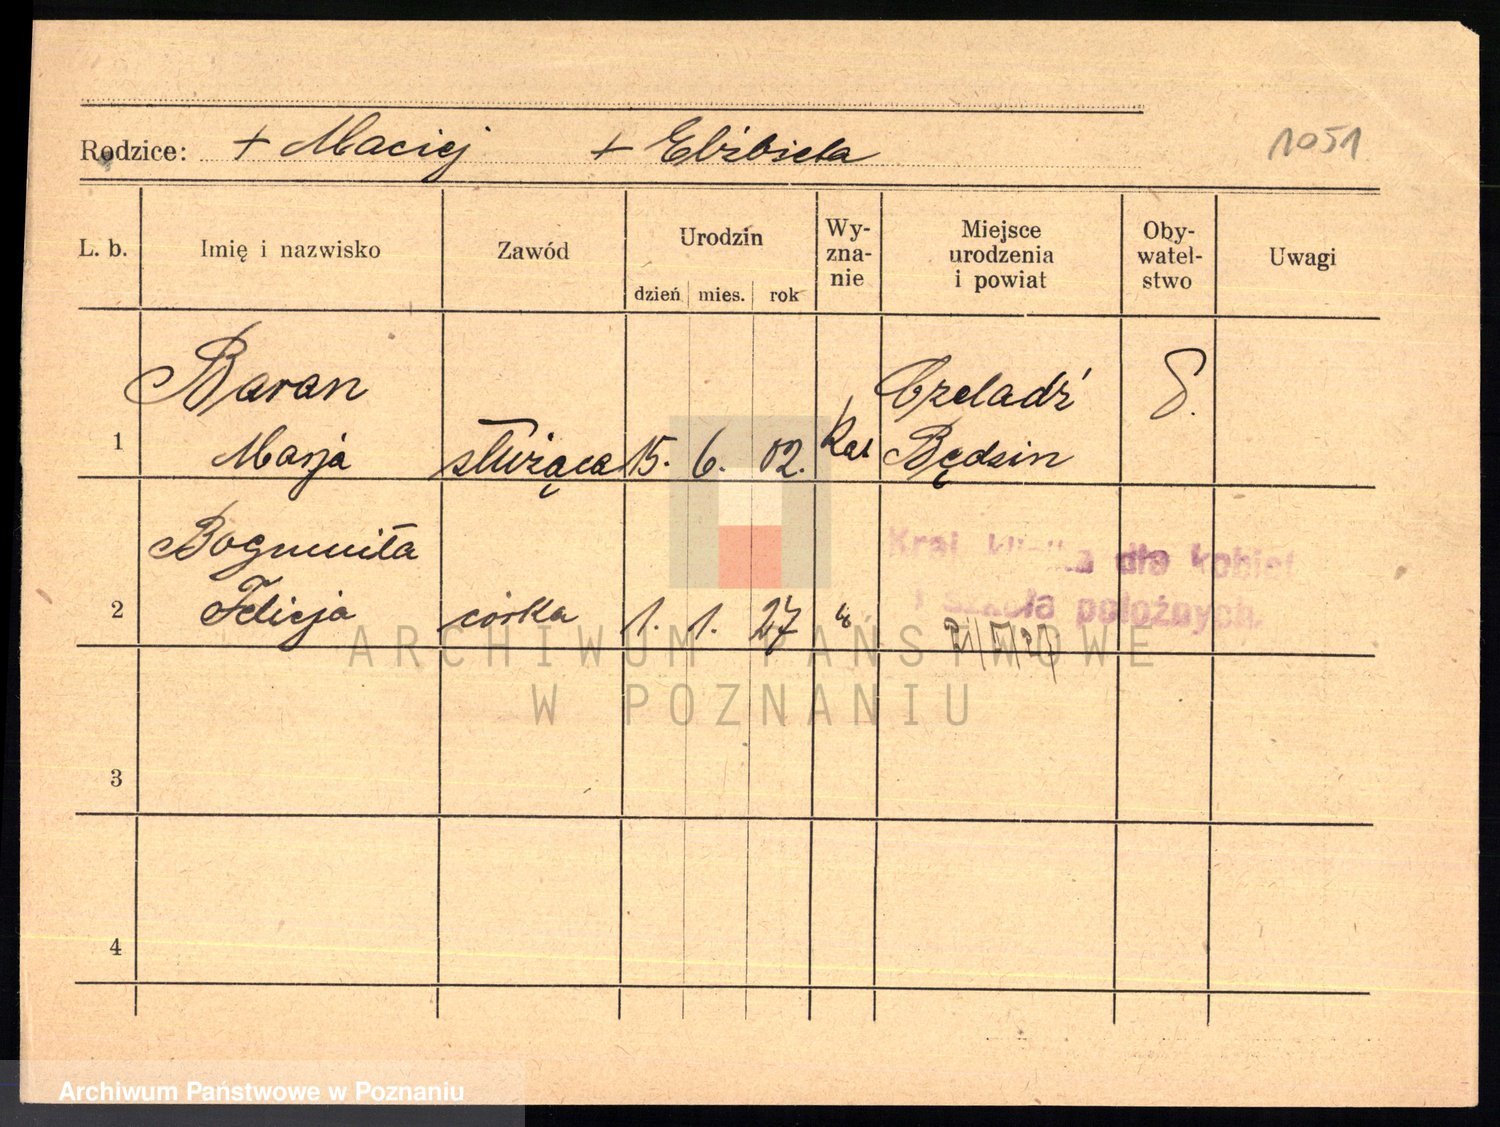 Rodzice: + Maciej + Elżbieta
1051
L. b. Imię i nazwisko Zawód Urodzin dzień mies. rok Wy-zna-nie Miejsce urodzenia i powiat Oby-watel-stwo Uwagi
Baran Czeladź
1 Marja służąca 15. 6. 02. Kat Będzin
Bogumiła
Kraj. dla kobiet
2 Felicja córka 1. 1. 27 "
i szkoła położnych.
ARCHIWUM PAŃSTWOWE
W POZNANIU
3
4
Archiwum Państwowe w Poznaniu